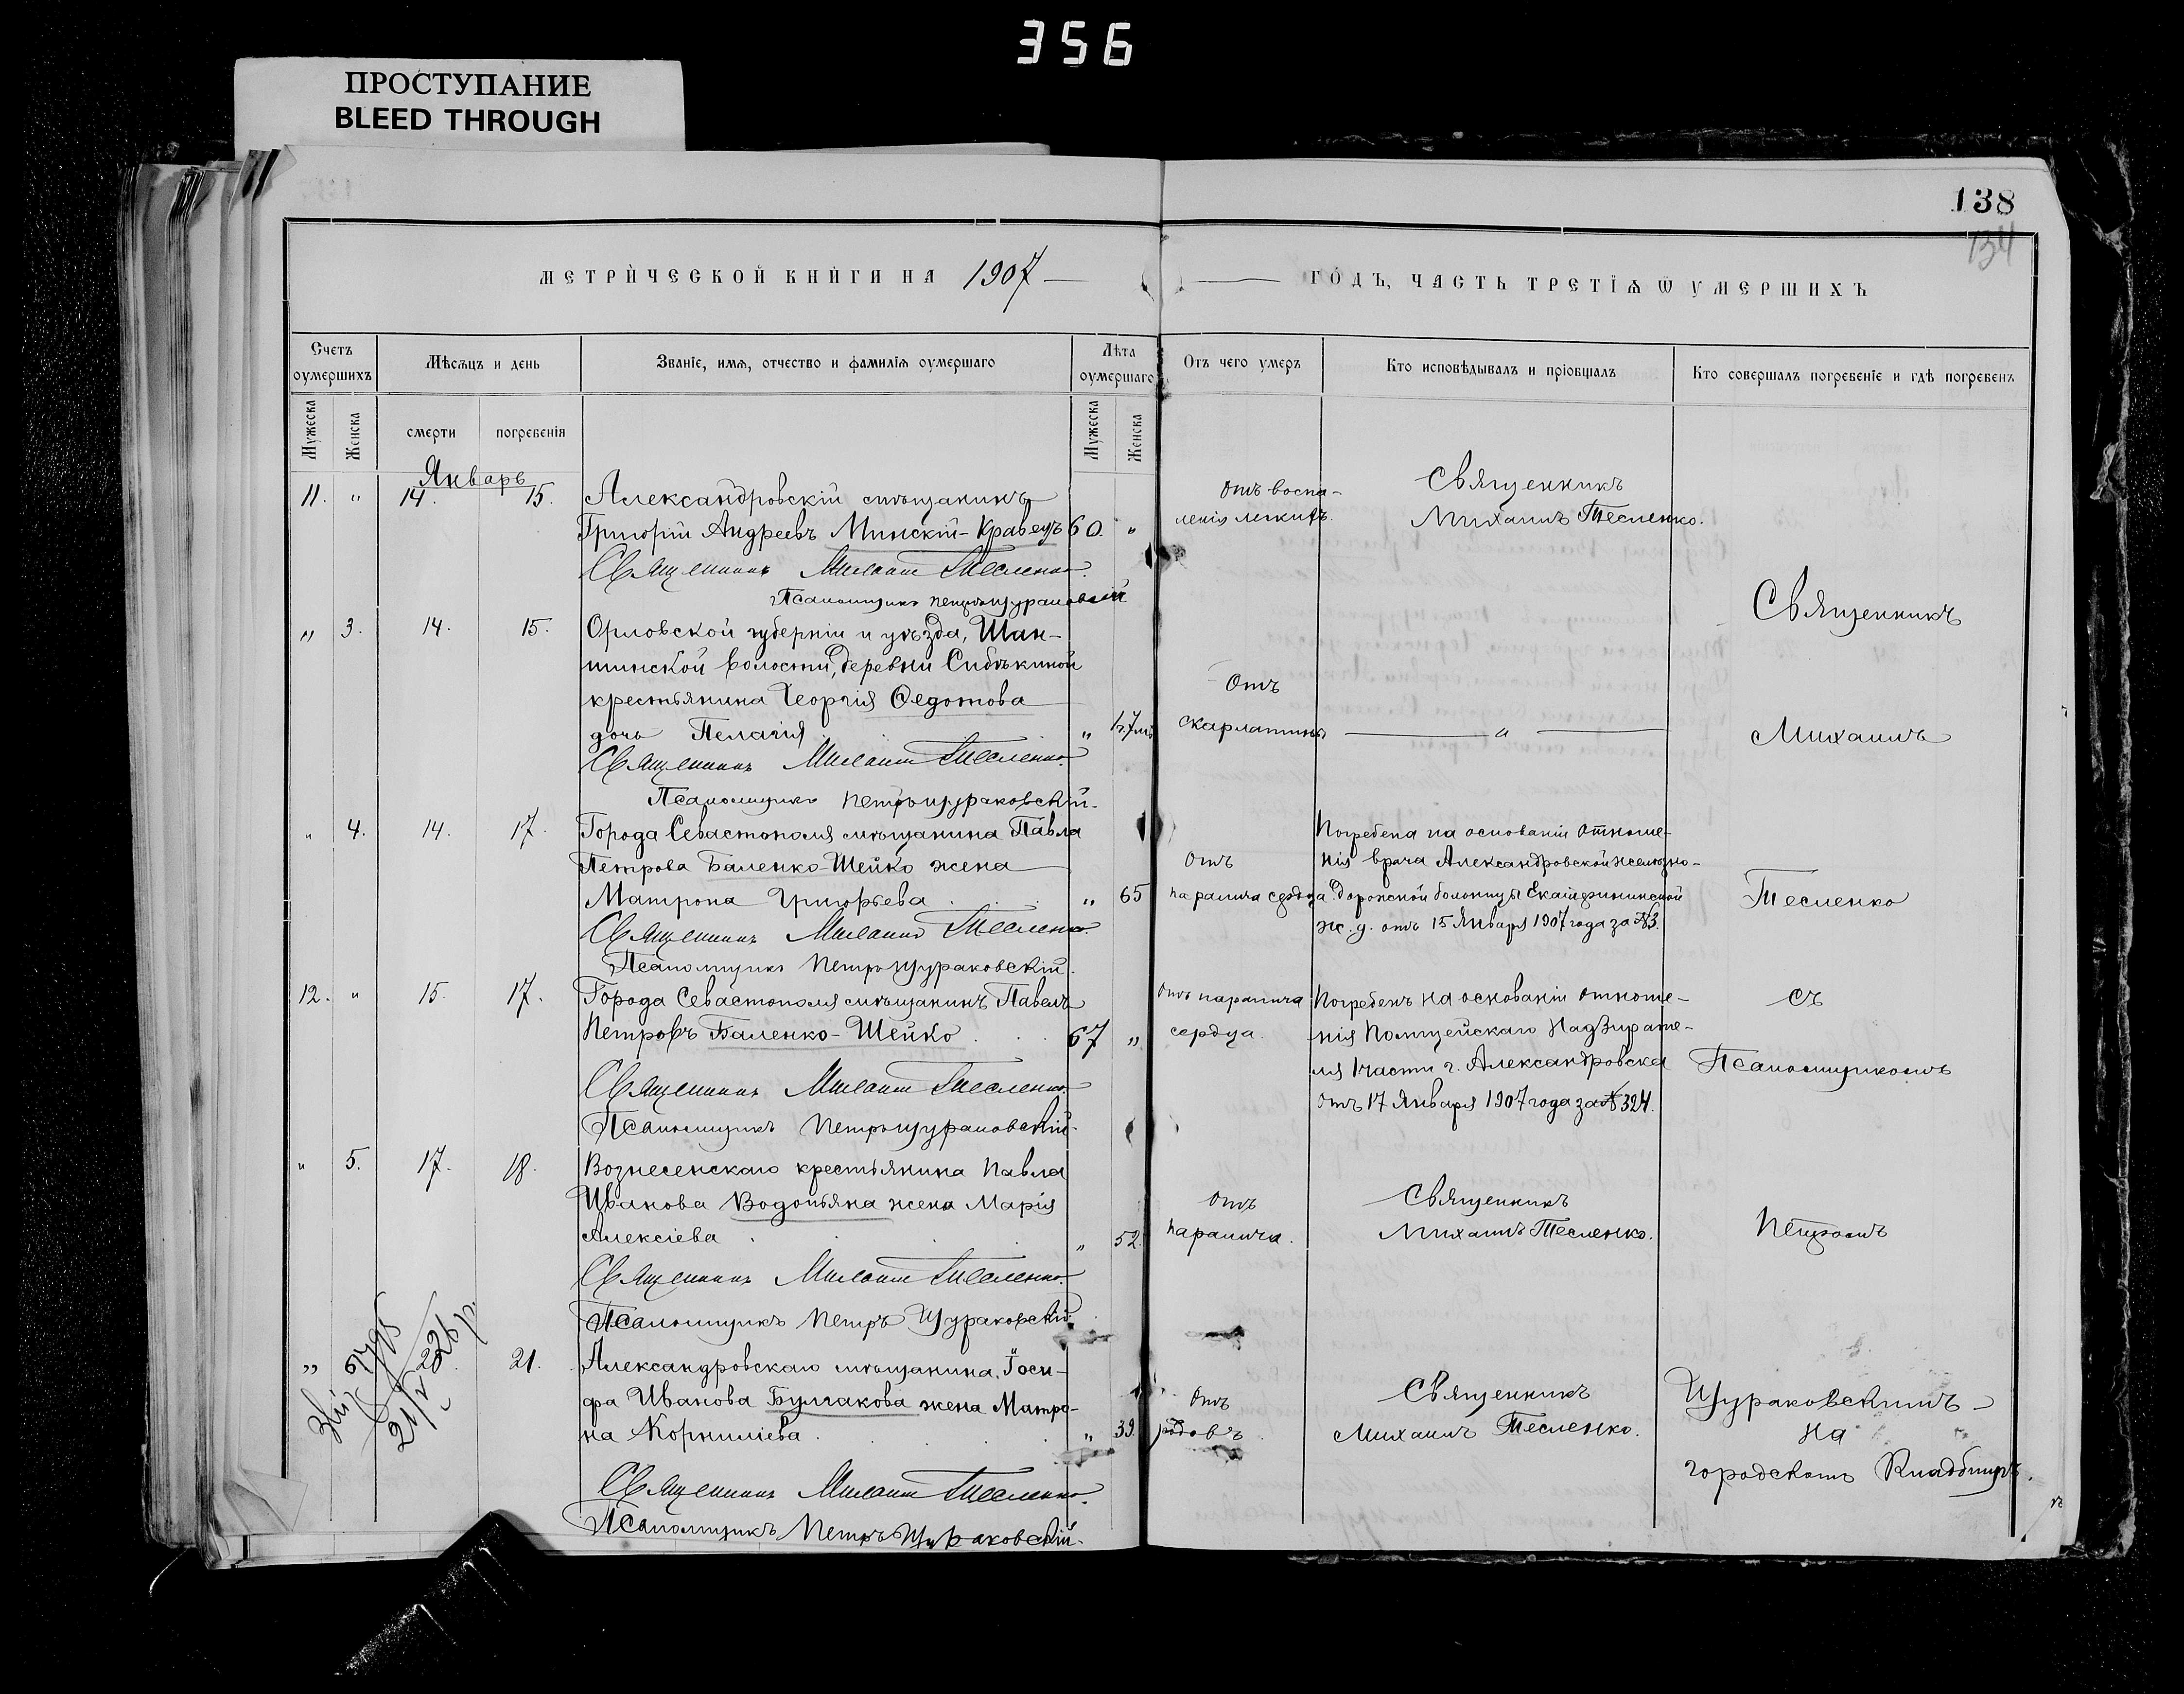 356
ПРОСТУПАНИЕ
BLEED THROUGH
138
134
МЕТРИЧЕСКОЙ КНИГИ НА 1907 ГОДЪ, ЧАСТЬ ТРЕТІЯ Ѿ УМЕРШИХЪ
Счетъ оумершихъ
Мѣсяцъ и день
Званіе, имя, отчество и фамилія оумершаго
Лѣта оумершаго
Отъ чего умеръ
Кто исповѣдывалъ и пріобщалъ
Кто совершалъ погребеніе и гдѣ погребенъ
Мужеска
Женска
смерти
погребенія
Мужеска
Женска
Январь
11. " 14. 15. Александровскій мѣщанинъ
Григорій Андреевъ Минскій-Кравецъ 60. "
отъ воспа-
ленія легкихъ.
Священникъ
Михаилъ Тесленко.
Священникъ Михаилъ Тесленко.
Псаломщикъ Петръ Щураковскій
" 3. 14. 15. Орловской губерніи и уѣзда,
волости, деревни
крестьянина Георгія Федотова
дочь Пелагія "
Отъ
скарлатины
"
Священникъ Михаилъ Тесленко.
Псаломщикъ Петръ Щураковскій.
" 4. 14. 17. Города Севастополя мѣщанина Павла
Петрова Баленко-Шейко жена
Матрона Григорьева " 65
Отъ
паралича сердца
Погребена на основаніи отноше-
нія врача Александровской желѣзно-
дорожной больницы Екатерининской
ж. д. отъ 15 Января 1907 года за №3.
Священникъ Михаилъ Тесленко.
Псаломщикъ Петръ Щураковскій.
12. " 15. 17. Города Севастополя мѣщанинъ Павелъ
Петровъ Баленко-Шейко 67 "
Отъ паралича
сердца.
Погребенъ на основаніи отноше-
нія Полицейскаго Надзирате-
ля 1 части г. Александровска
отъ 17 Января 1907 года за № 324.
Священникъ Михаилъ Тесленко.
Псаломщикъ Петръ Щураковскій.
" 5. 17. 18. Вознесенскаго крестьянина Павла
Иванова Водопьяна жена Марія
Алексіева " 52.
Отъ
паралича.
Священникъ
Михаилъ Тесленко.
Священникъ Михаилъ Тесленко.
Псаломщикъ Петръ Щураковскій
" 20. 21. Александровскаго мѣщанина Іоси-
фа Иванова Булгакова жена Матро-
на Корниліева " 39.
Отъ
родовъ
Священникъ
Михаилъ Тесленко.
Священникъ Михаилъ Тесленко.
Псаломщикъ Петръ Щураковскій.
Священникъ
Михаилъ
Тесленко
съ
Псаломщикомъ
Петромъ
Щураковскимъ
на
городскомъ кладбищѣ.